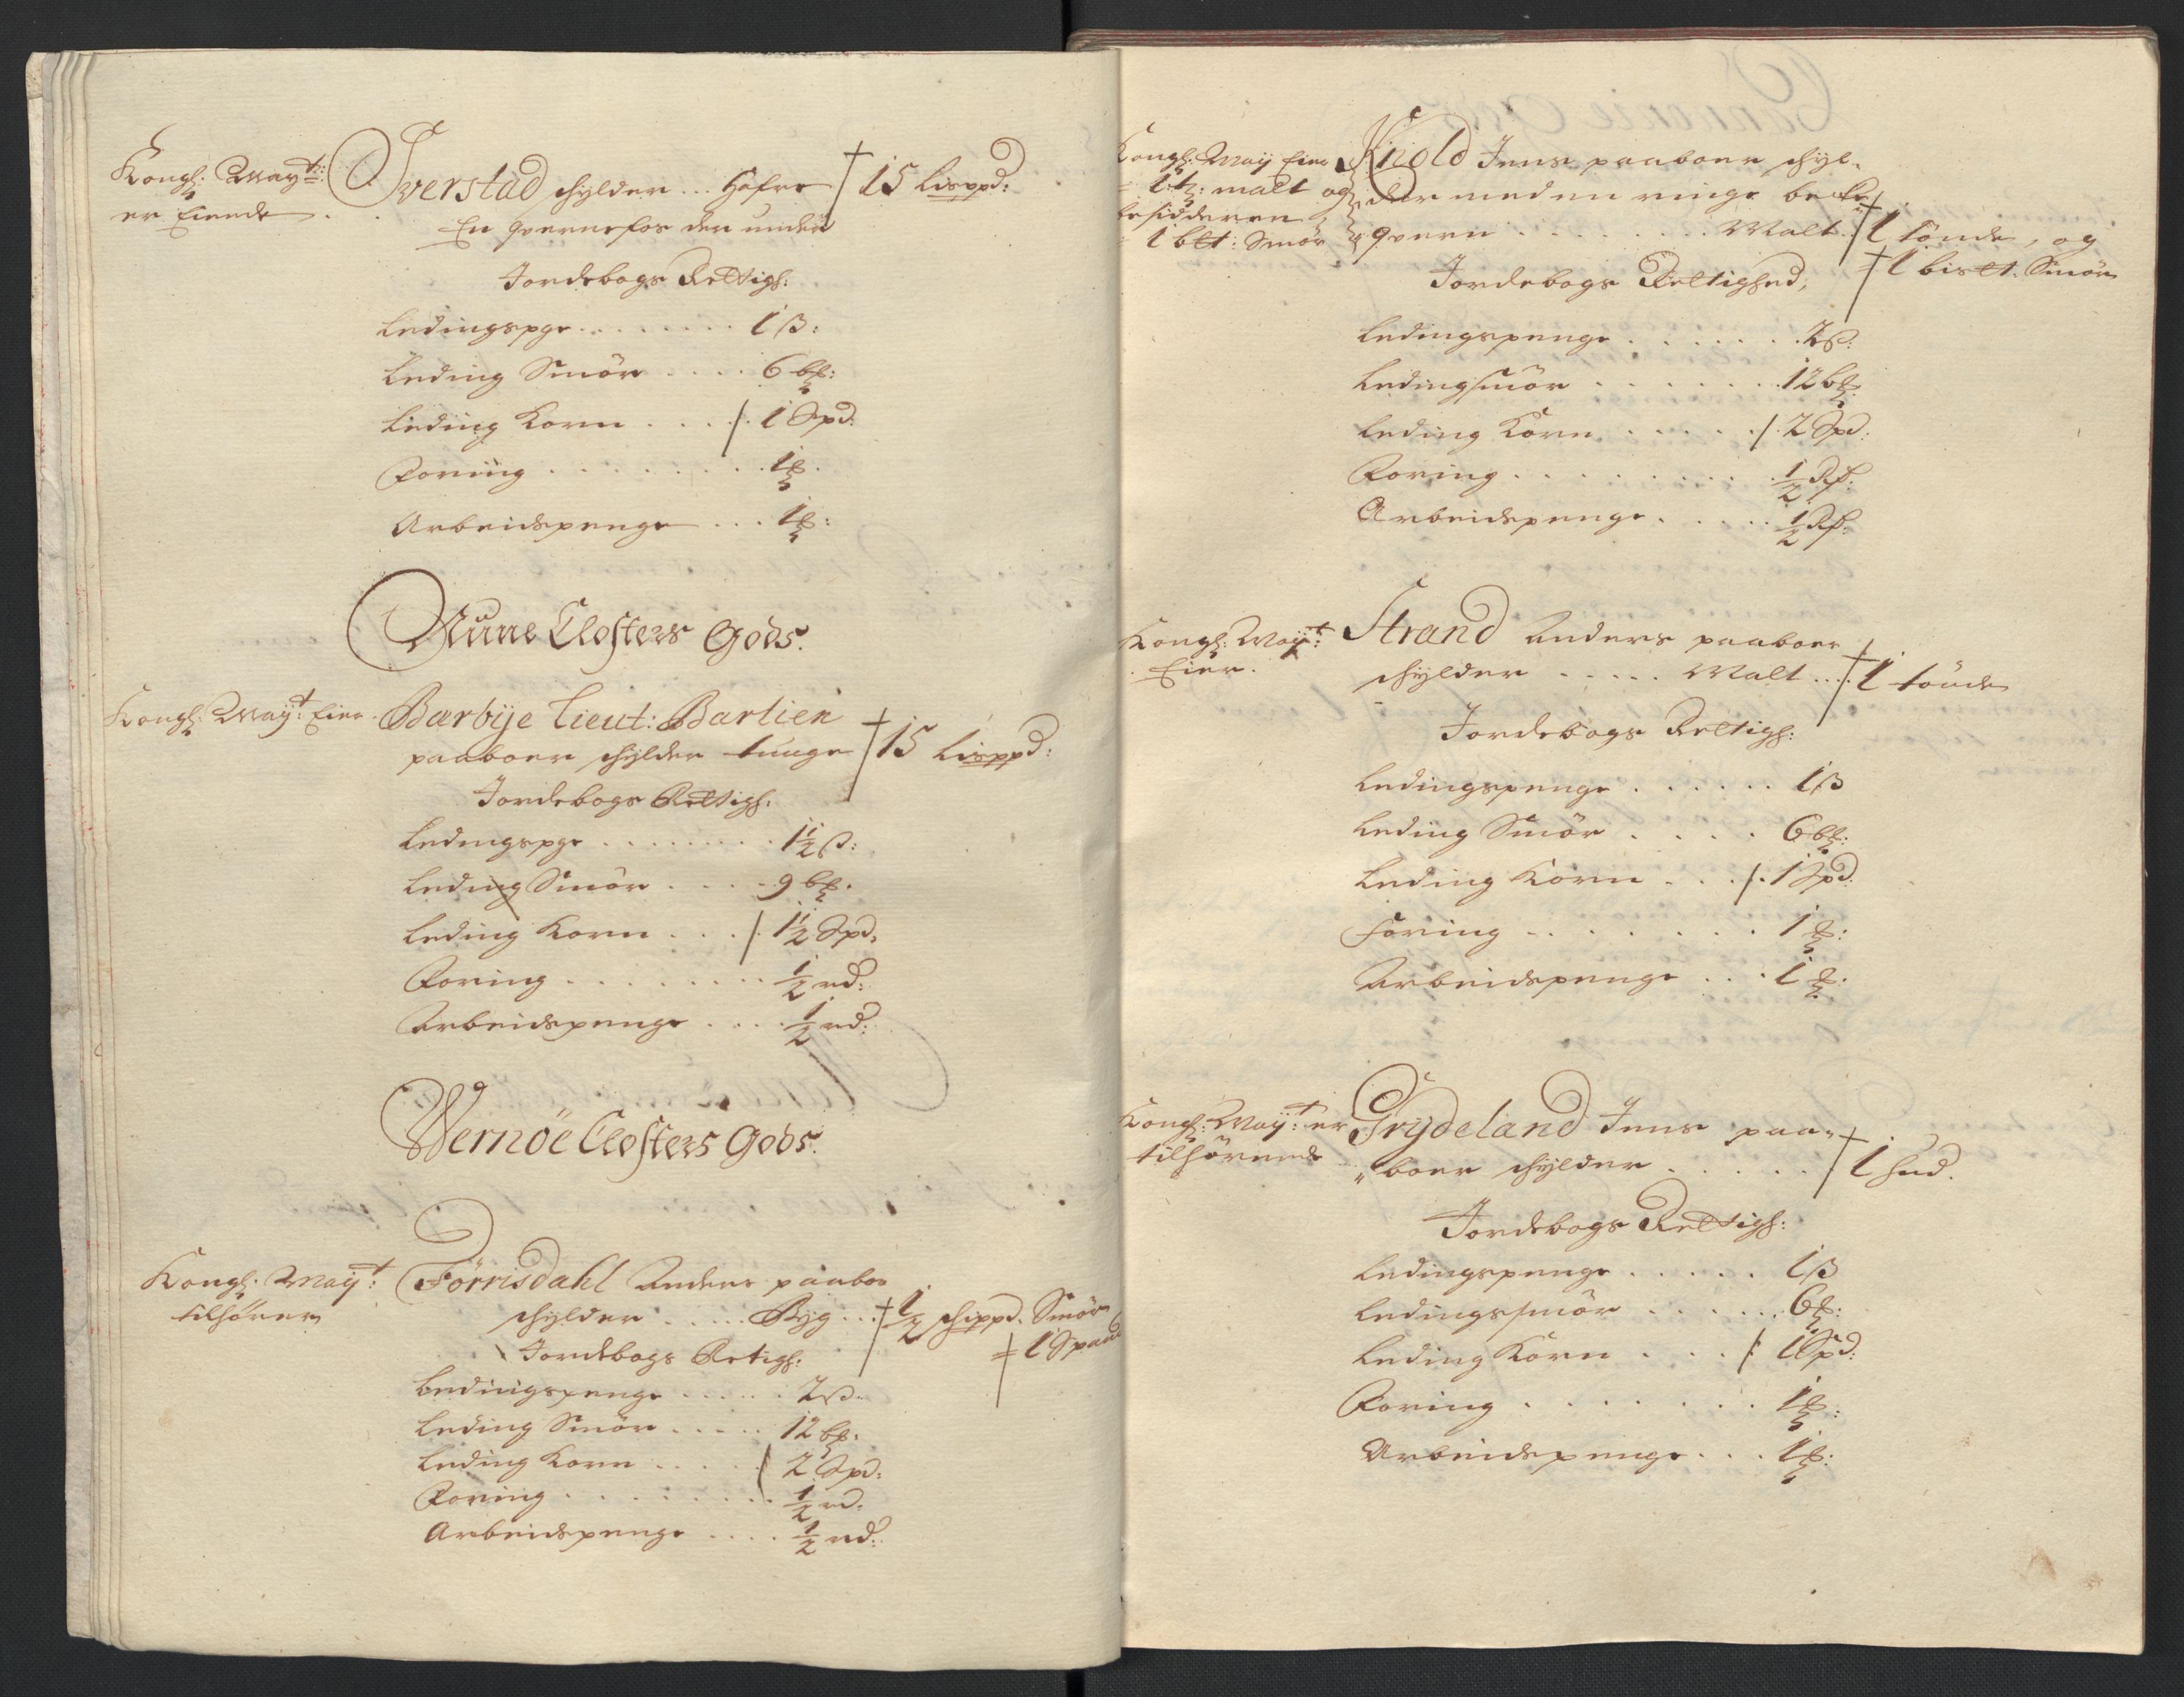 Kongl: Mayt:
er Eiende
Iverstad schylder ... Hafre 15 Lisppd:
En Qvernefos der under
Jordebogs Rettigh:
Ledingspge ........ 1 ß:
Leding Smör .... 6 bl:
Leding Korn .... 1 Spd:
Foring ......... 1
Arbeidspenge ... 1
Nune Closters Gods.
Kongl: Mayt: Eier
Barbÿe Lieut: Barlien
paaboer schylder tunge 15 Lisppd:
Jordebogs Rettigh.
Ledingspge ........ 1½ ß:
Leding Smör .... 9
Leding Korn .... 1½ Spd:
Foring ......... ½ rd:
Arbeidspenge .... ½ rd:
Wernöe Closters Gods.
Kongl: Mayt:
tilhörer
Förrisdahl Anders paaboe
schylder ..... Byg ... ½ schippd. Smör
1 Spand
Jordebogs Retigh:
Ledingspenge ...... 2 ß.
Leding Smör ..... 12
Leding Korn ..... 2 Spd:
Foring ......... ½ rd.
Arbeidspenge .... ½ rd:
Kongl: May Eier
1 t: malt og
besidderen
1 Smör
Knold Jens paaboer schyl-
der med en ringe becke
qvern ....... Malt 1 tönde, og
1 Smör
Jordebogs Rettighed,
Ledingspenge ....... 2 ß:
Ledingsmör ....... 12
Leding Korn ..... 2 Spd:
Foring ......... ½
Arbeidspenge ..... ½
Kongl: Mayt:
Eier.
Strand Anders paaboer
schylder ..... Malt ... 1 tönde
Jordebogs Rettigh:
Ledingspenge ...... 1 ß
Leding Smör .... 6
Leding Korn .... 1 Spd.
Foring ........ 1
Arbeidspenge ... 1
Kongl: Mayt: er
tilhörende
Grydeland Jens paa-
boer schylder ..... 1 hud.
Jordebogs Rettigh:
Ledingspenge ..... 1 ß
Ledingssmör ..... 6
Leding Korn .... 1 Spd:
Foring ....... 1
Arbeidspenge ... 1